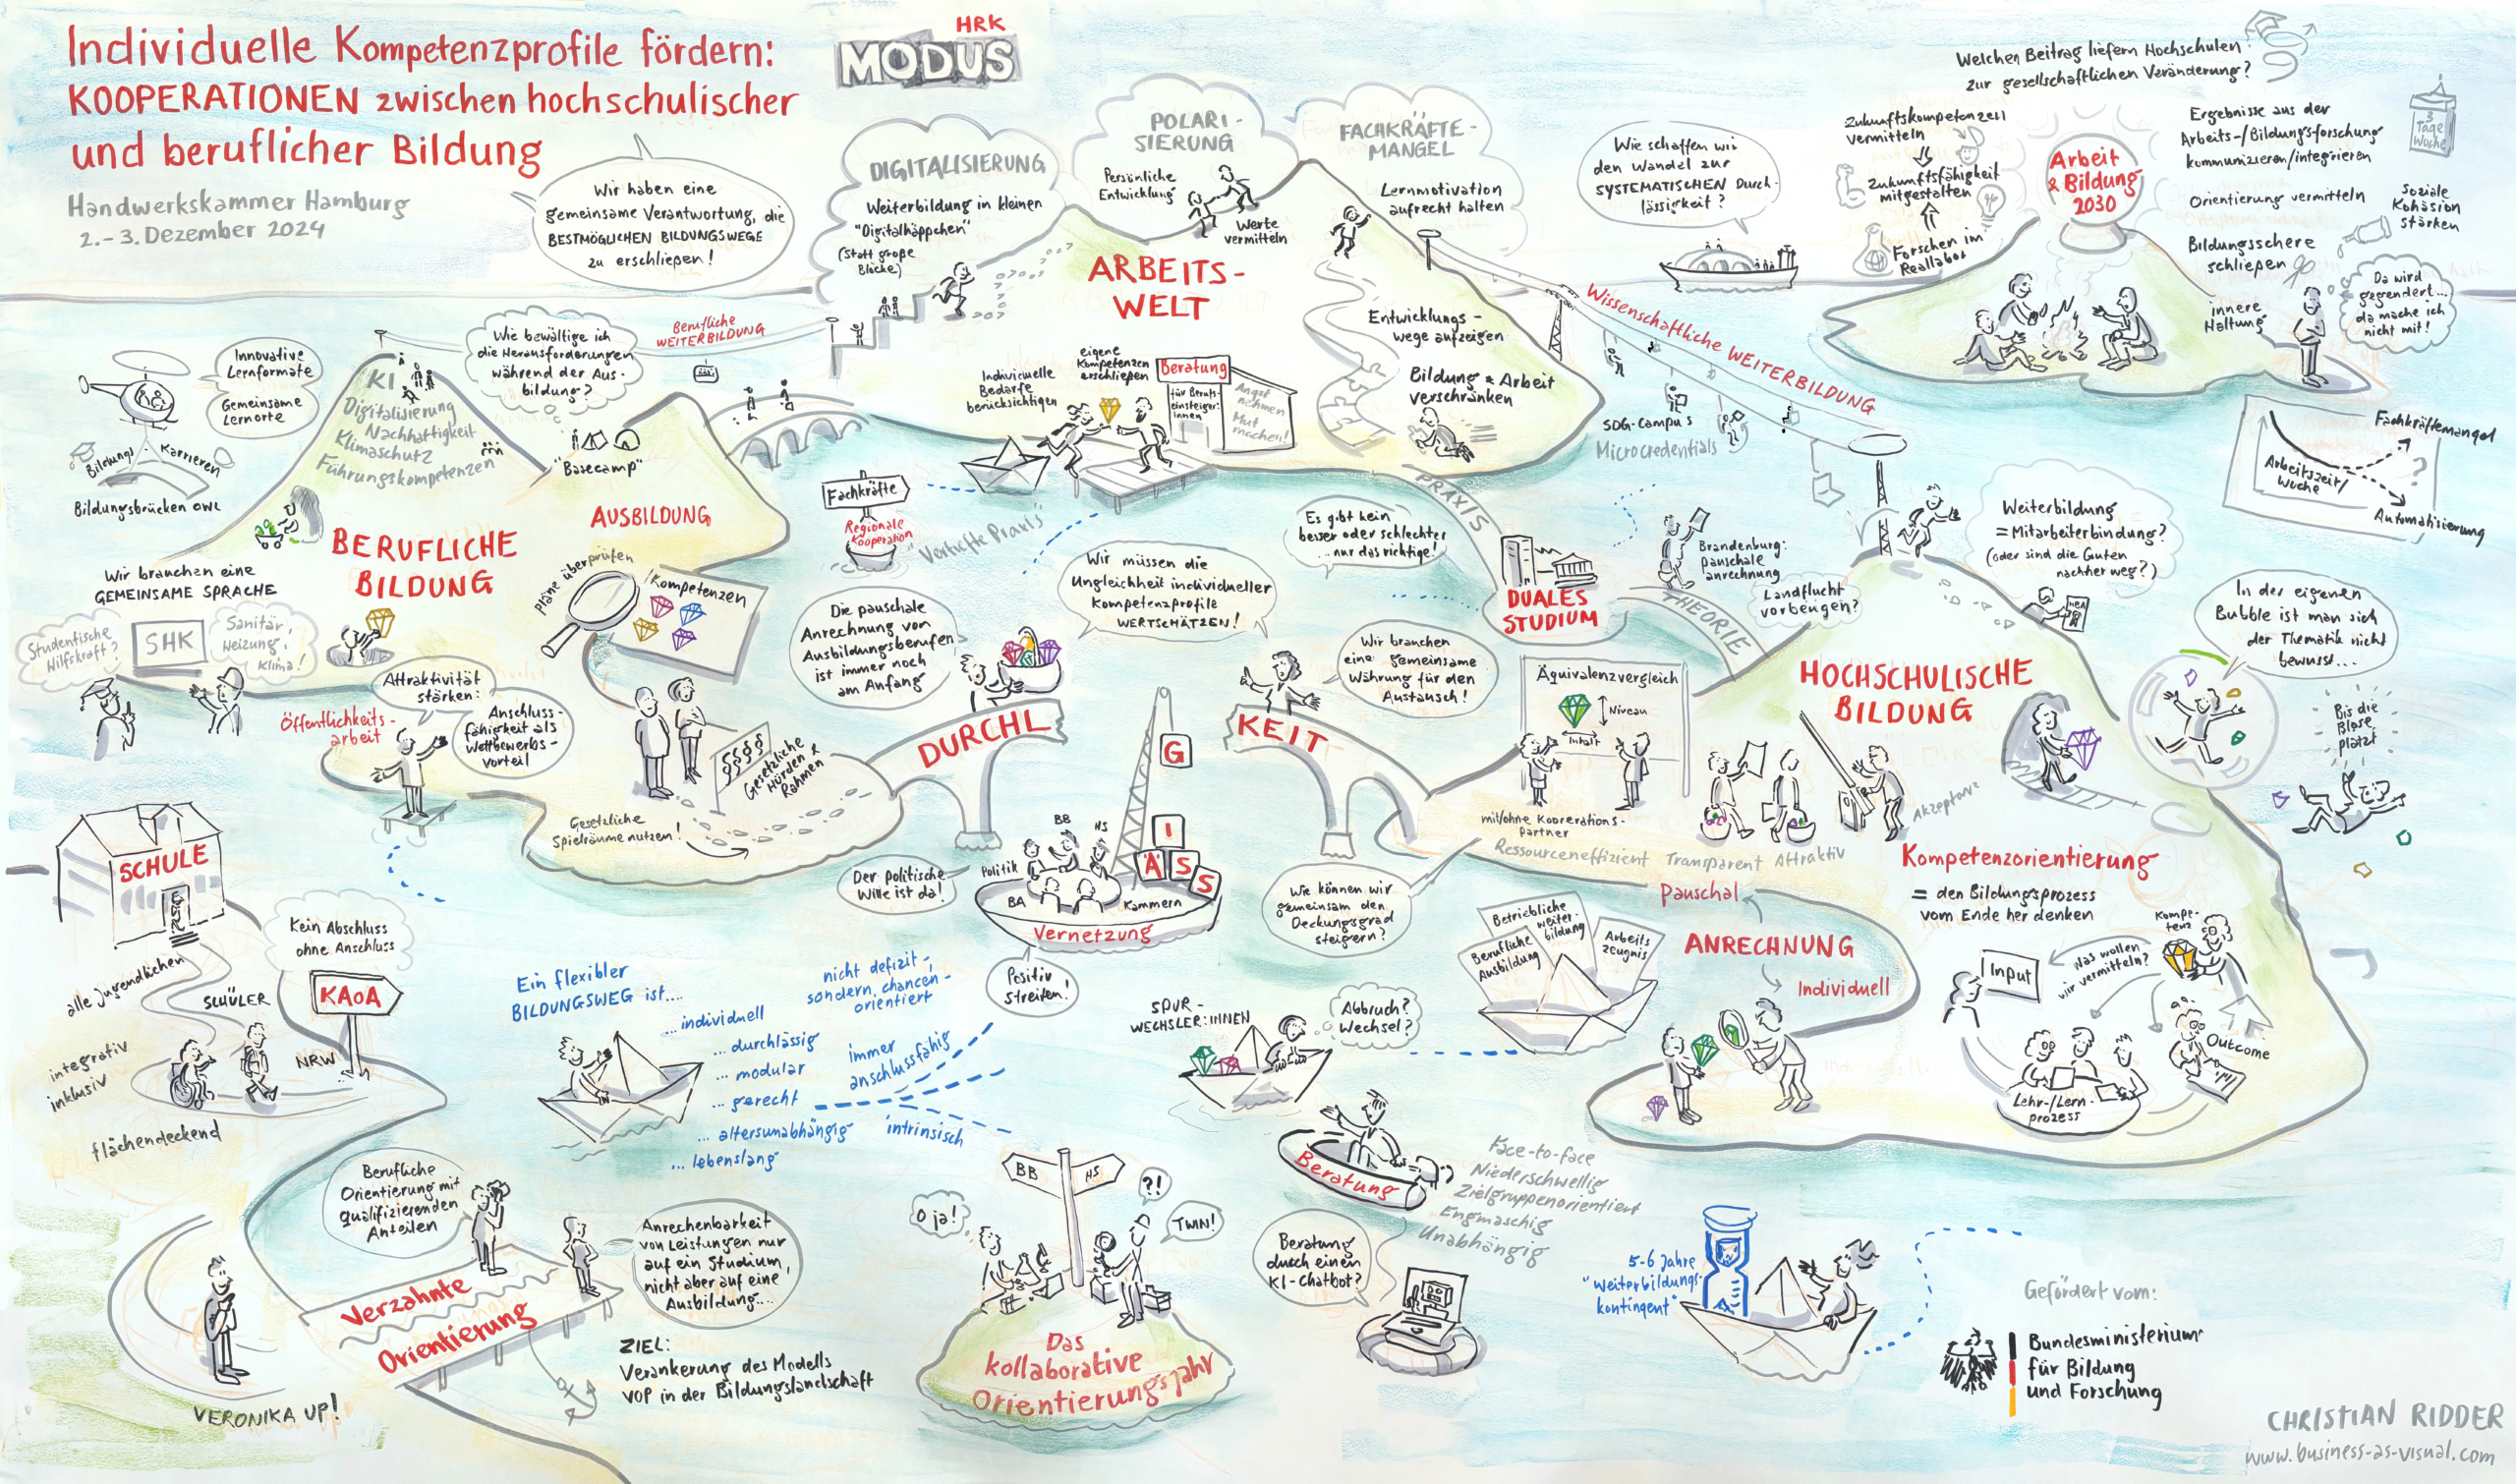 Individuelle Kompetenzprofile fördern:
KOOPERATIONEN zwischen hochschulischer
und beruflicher Bildung
Handwerkskammer Hamburg
2.-3. Dezember 2024
HRK
MODUS
Wir haben eine
gemeinsame Verantwortung, die
BESTMÖGLICHEN BILDUNGSWEGE
zu erschließen!
DIGITALISIERUNG
Weiterbildung in kleinen
"Digitalhäppchen"
(Statt große
Blöcke)
POLARI-
SIERUNG
Persönliche
Entwicklung
Werte
vermitteln
FACHKRÄFTE-
MANGEL
Lernmotivation
aufrecht halten
Wie schaffen wir
den Wandel zur
SYSTEMATISCHEN Durch-
lässigkeit?
Welchen Beitrag liefern Hochschulen
zur gesellschaftlichen Veränderung?
Zukunftskompetenzen
vermitteln
Zukunftsfähigkeit
mitgestalten
Forschen im
Reallabor
Arbeit
& Bildung
2030
Ergebnisse aus der
Arbeits-/Bildungsforschung
kommunizieren/integrieren
Orientierung vermitteln
Bildungsschere
schließen
3
Tage
Woche
Soziale
Kohäsion
stärken
innere
Haltung
Da wird
gegendert...
da mache ich
nicht mit!
ARBEITS-
WELT
Entwicklungs-
wege aufzeigen
Bildung & Arbeit
verschränken
Individuelle
Bedarfe
berücksichtigen
eigene
Kompetenzen
erschließen
Beratung
für Berufs-
einsteiger:
innen
Angst
nehmen
Mut
machen!
Wissenschaftliche WEITERBILDUNG
SDG-Campus
Microcredentials
Fachkräftemangel
Arbeitszeit/
Woche
?
Automatisierung
Innovative
Lernformate
Gemeinsame
Lernorte
Bildungs-Karrieren
Bildungsbrücken OWL
KI
Digitalisierung
Nachhaltigkeit
Klimaschutz
Führungskompetenzen
Wie bewältige ich
die Herausforderungen
während der Aus-
bildung?
Berufliche
WEITERBILDUNG
"Basecamp"
AUSBILDUNG
BERUFLICHE
BILDUNG
Wir brauchen eine
GEMEINSAME SPRACHE
Studentische
Hilfskraft?
SHK
Sanitär,
Heizung,
Klima!
Pläne überprüfen
Kompetenzen
Fachkräfte
Regionale
Kooperation
"Vertiefte Praxis"
Die pauschale
Anrechnung von
Ausbildungsberufen
ist immer noch
am Anfang
Wir müssen die
Ungleichheit individueller
Kompetenzprofile
WERTSCHÄTZEN!
Es gibt kein
besser oder schlechter
...nur das richtige!
PRAXIS
DUALES
STUDIUM
THEORIE
Brandenburg:
pauschale
Anrechnung
Landflucht
vorbeugen?
Weiterbildung
= Mitarbeiterbindung?
(oder sind die Guten
nachher weg?)
MBA
In der eigenen
Bubble ist man sich
der Thematik nicht
bewusst...
Bis die
Blase
platzt
Wir brauchen
eine gemeinsame
Währung für den
Austausch!
Äquivalenzvergleich
Niveau
Inhalt
mit/ohne Kooperations-
Partner
Ressourceneffizient Transparent Attraktiv
Akzeptanz
HOCHSCHULISCHE
BILDUNG
Attraktivität
stärken:
Öffentlichkeits-
arbeit
Anschluss-
fähigkeit als
Wettbewerbs-
vorteil
§§§§§
Gesetzliche
Hürden &
Rahmen
Gesetzliche
Spielräume nutzen!
DURCHL
KEIT
G
I
Ä
S
S
Der politische
Wille ist da!
Politik
BB
HS
BA
Kammern
Vernetzung
Positiv
streiten!
Wie können wir
gemeinsam den
Deckungsgrad
steigern?
Pauschal
ANRECHNUNG
Individuell
Berufliche
Ausbildung
Betriebliche
Weiter-
bildung
Arbeits
zeugnis
Kompetenzorientierung
= den Bildungsprozess
vom Ende her denken
Kompe-
tenz
Was wollen
wir vermitteln?
Input
Lehr-/Lern-
prozess
Outcome
SCHULE
alle Jugendlichen
SCHÜLER
Kein Abschluss
ohne Anschluss
KAoA
NRW
integrativ
inklusiv
flächendeckend
Ein flexibler
BILDUNGSWEG ist....
...individuell
...durchlässig
...modular
...gerecht
...altersunabhängig
...lebenslang
nicht defizit-,
sondern chancen-
orientiert
immer
anschlussfähig
intrinsisch
SPUR-
WECHSLER:INNEN
Abbruch?
Wechsel?
Beratung
Face-to-face
Niederschwellig
Zielgruppenorientiert
Engmaschig
Unabhängig
Beratung
durch einen
KI-Chatbot?
Berufliche
Orientierung mit
qualifizierenden
Anteilen
Anrechenbarkeit
von Leistungen nur
auf ein Studium,
nicht aber auf eine
Ausbildung....
Verzahnte
Orientierung
ZIEL:
Verankerung des Modells
VOP in der Bildungslandschaft
VERONIKA UP!
BB
HS
O ja!
?!
TWIN!
Das
kollaborative
Orientierungsjahr
5-6 Jahre
"Weiterbildungs-
kontingent"
Gefördert vom:
Bundesministerium
für Bildung
und Forschung
CHRISTIAN RIDDER
www.business-as-visual.com